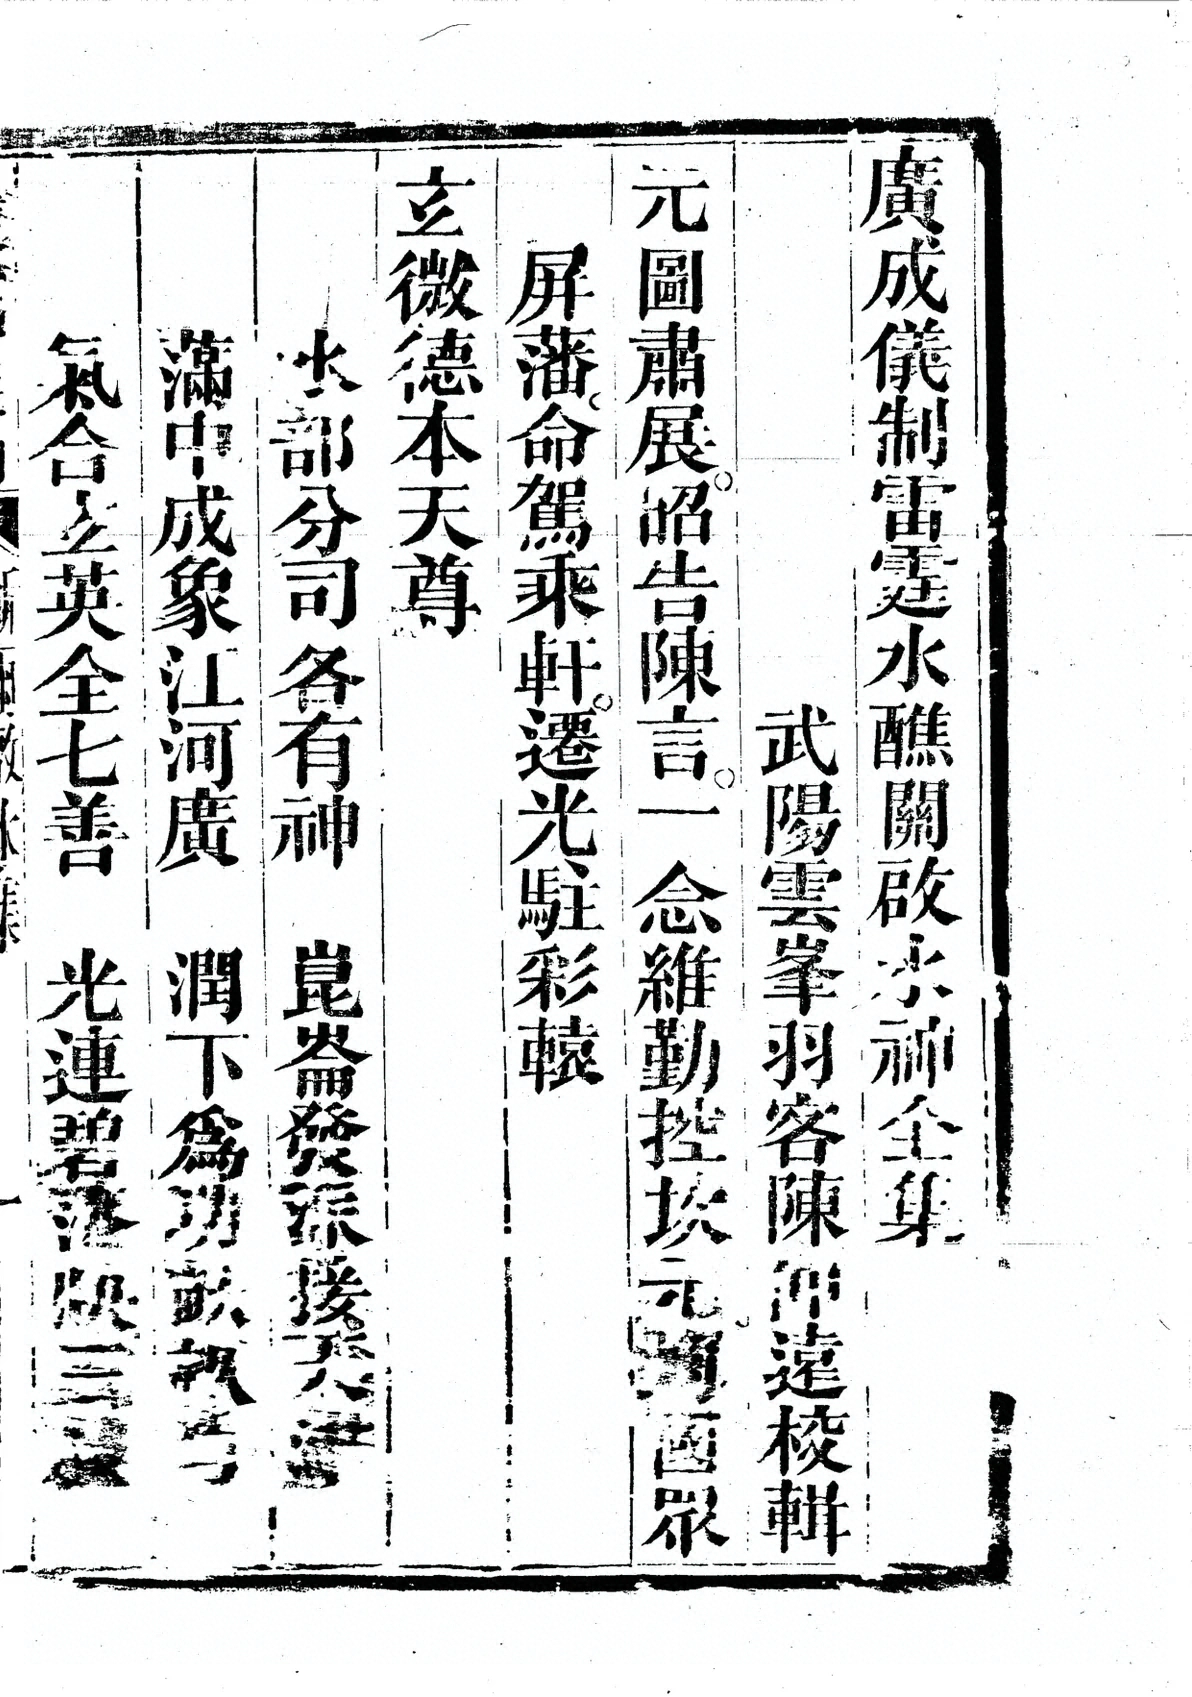 廣成儀制雷霆水醮關啟水神全集
武陽雲峯羽客陳仲遠校輯
元圖肅展昭告陳言一念維勤控坎元 國眾
屏藩命駕乘軒遷光駐彩轅
玄微德本天尊
水部分司各有神 崑崙發派接天
滿中成象江河廣 潤下為功畝
氣合玄英全七善 光連碧落 三